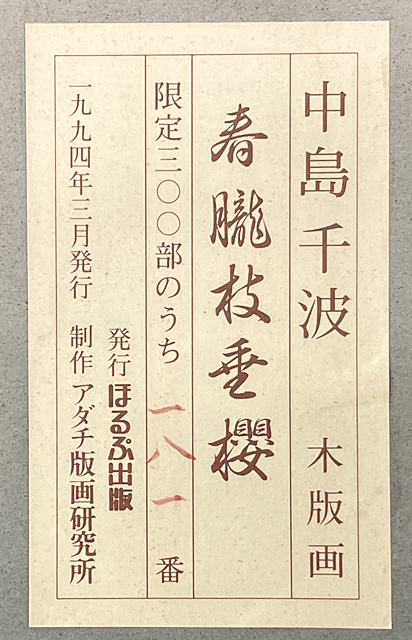 中島千波 木版画
春朧枝垂櫻
限定三〇〇部のうち 一八一 番
発行 ほるぷ出版
一九九四年三月発行 制作 アダチ版画研究所